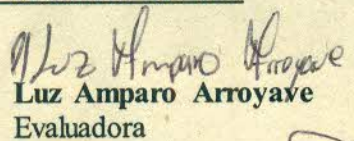 Luz Amparo Arroyave
Luz Amparo Arroyave
Evaluadora